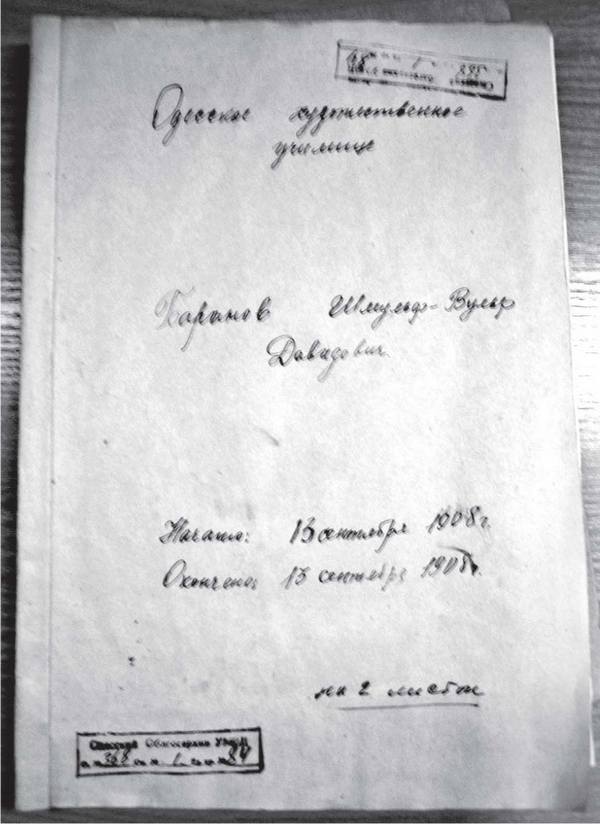 Одесское художественное
училище
Баранов Шмульф-Вульф
Давидович
Начато: 13 сентября 1908 г.
Окончено: 13 сентября 1908 г.
на 2 листах
Одесский Облгосархив